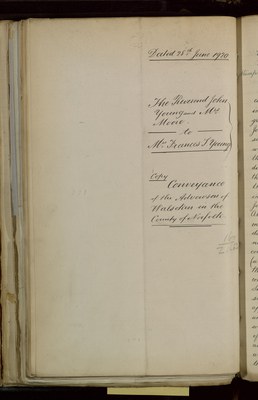 Dated 26th June 19
The Reverend John
Young and Mrs
Moore
to
Mr Frances S Young
Copy
Conveyance
of the Advowson of
in the
County of Norfolk